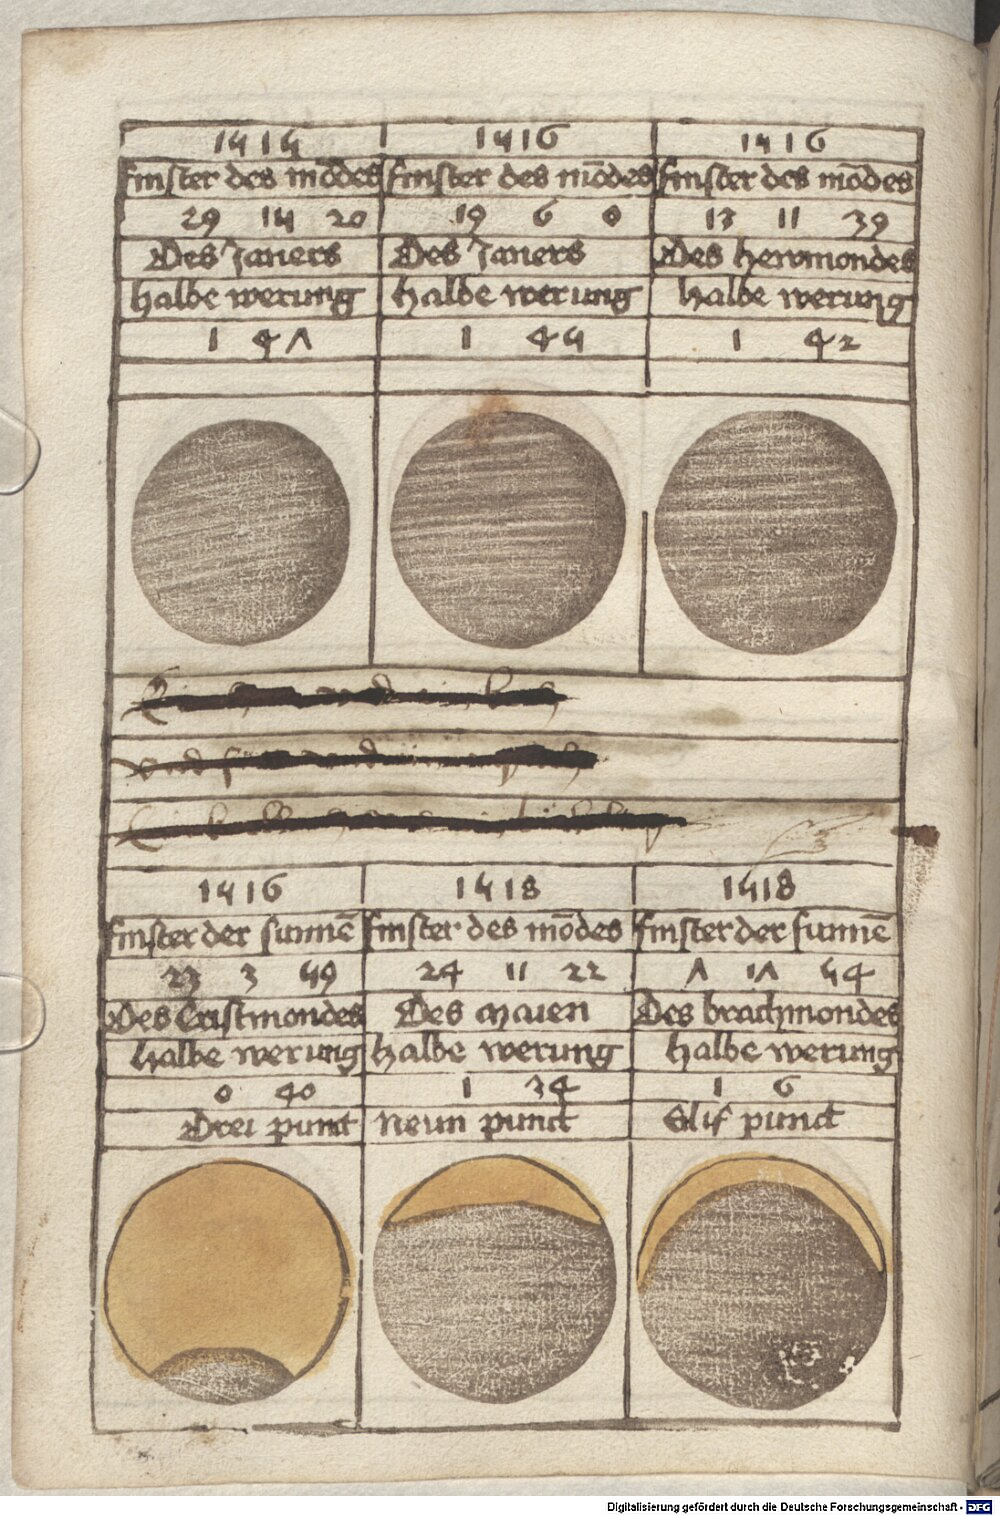 1515
finster des mōdes
29 15 20
Des Janers
halbe werung
1 47
1516
finster des mōdes
19 6 0
Des Janers
halbe werung
1 45
1516
finster des mōdes
13 11 39
Des hewmondes
halbe werung
1 42
1516
finster der sunnē
23 3 59
Des Cristmondes
halbe werung
0 40
Drei punct
1518
finster des mōdes
24 11 22
Des maien
halbe werung
1 34
Neun punct
1518
finster der sunnē
7 17 54
Des brachmondes
halbe werung
1 6
Elif punct
Digitalisierung gefördert durch die Deutsche Forschungsgemeinschaft - DFG